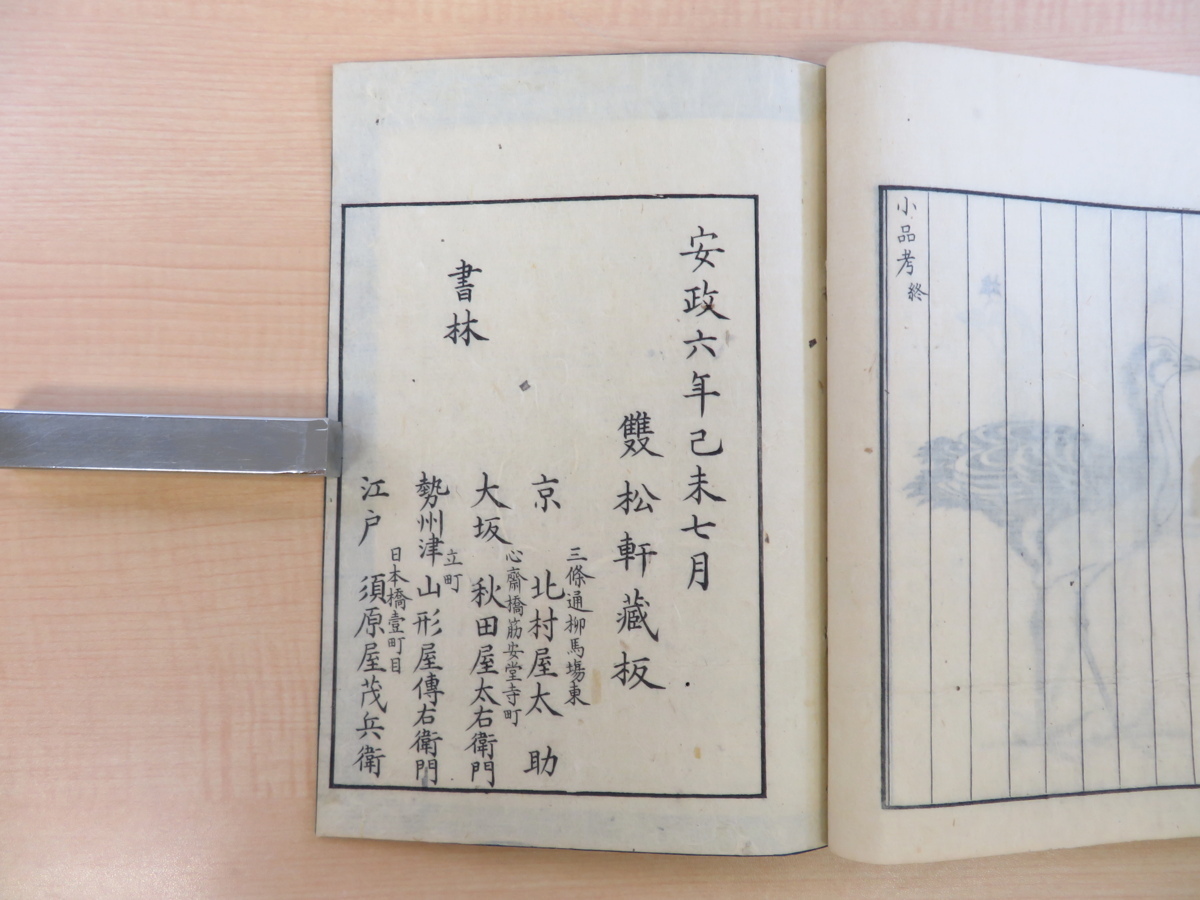 小品考終
安政六年己未七月
雙松軒藏板
三條通柳馬場東
京 北村屋太助
心齋橋筋安堂寺町
大坂 秋田屋太右衛門
立町
勢州津 山形屋傳右衛門
日本橋壹町目
江戸 須原屋茂兵衛
書林